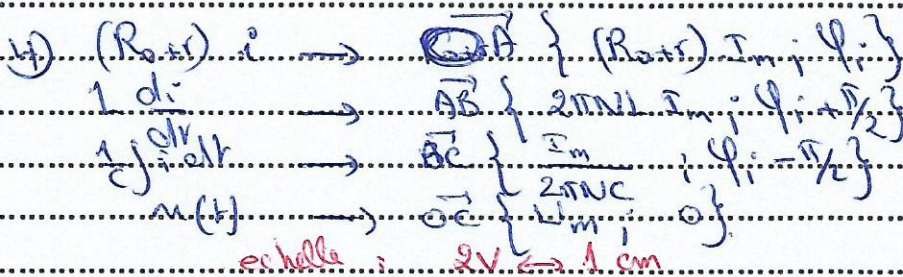 4) (R₀+r) i → OA⃗ { (R₀+r) Iₘ ; φᵢ }
L di/dt → AB⃗ { 2πNL Iₘ ; φᵢ + π/2 }
1/c ∫ i dt → BC⃗ { Iₘ/2πNC ; φᵢ - π/2 }
u(t) → OC⃗ { Uₘ ; 0 }.
echelle : 2V ↔ 1 cm